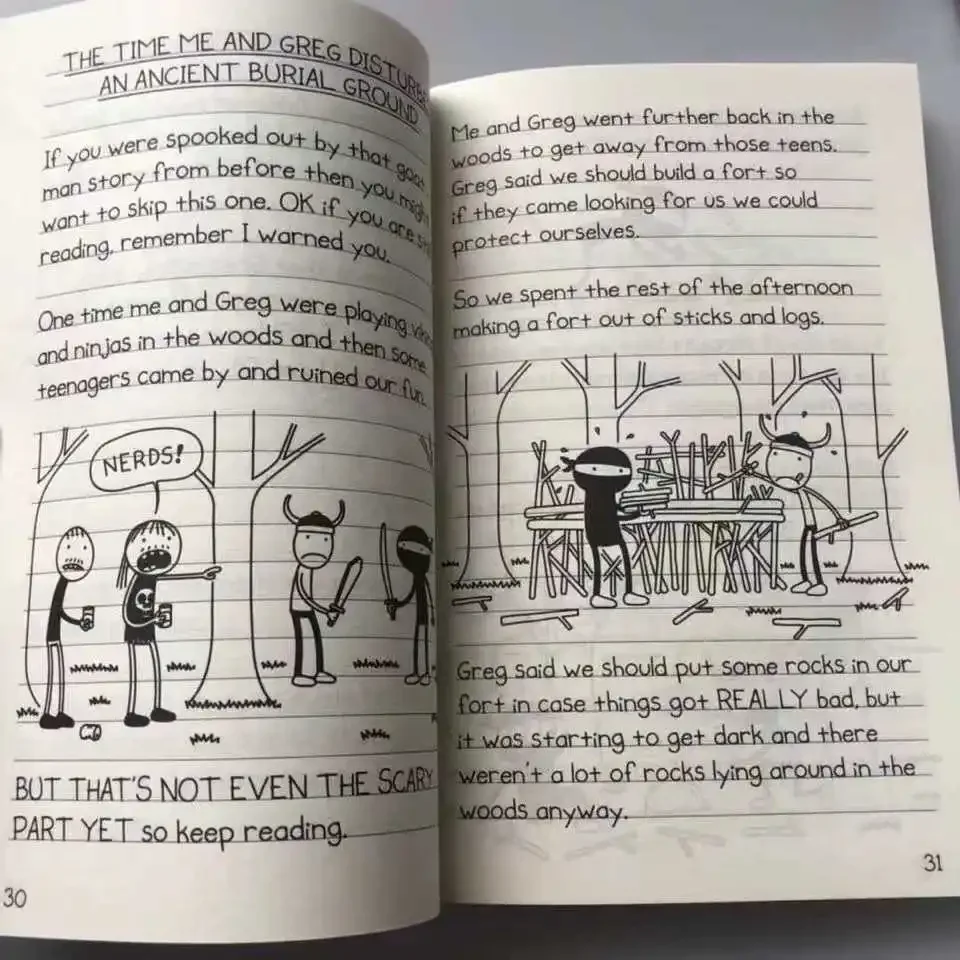 THE TIME ME AND GREG
AN ANCIENT BURIAL GROUND
If you were spooked out by that goat
man story from before then you
want to skip this one. OK if you are
reading, remember I warned you.
One time me and Greg were playing
and ninjas in the woods and then some
teenagers came by and ruined our fun.
NERDS!
BUT THAT'S NOT EVEN THE SCARY
PART YET so keep reading.
30
Me and Greg went further back in the
woods to get away from those teens.
Greg said we should build a fort so
if they came looking for us we could
protect ourselves.
So we spent the rest of the afternoon
making a fort out of sticks and logs.
Greg said we should put some rocks in our
fort in case things got REALLY bad, but
it was starting to get dark and there
weren't a lot of rocks lying around in the
woods anyway.
31